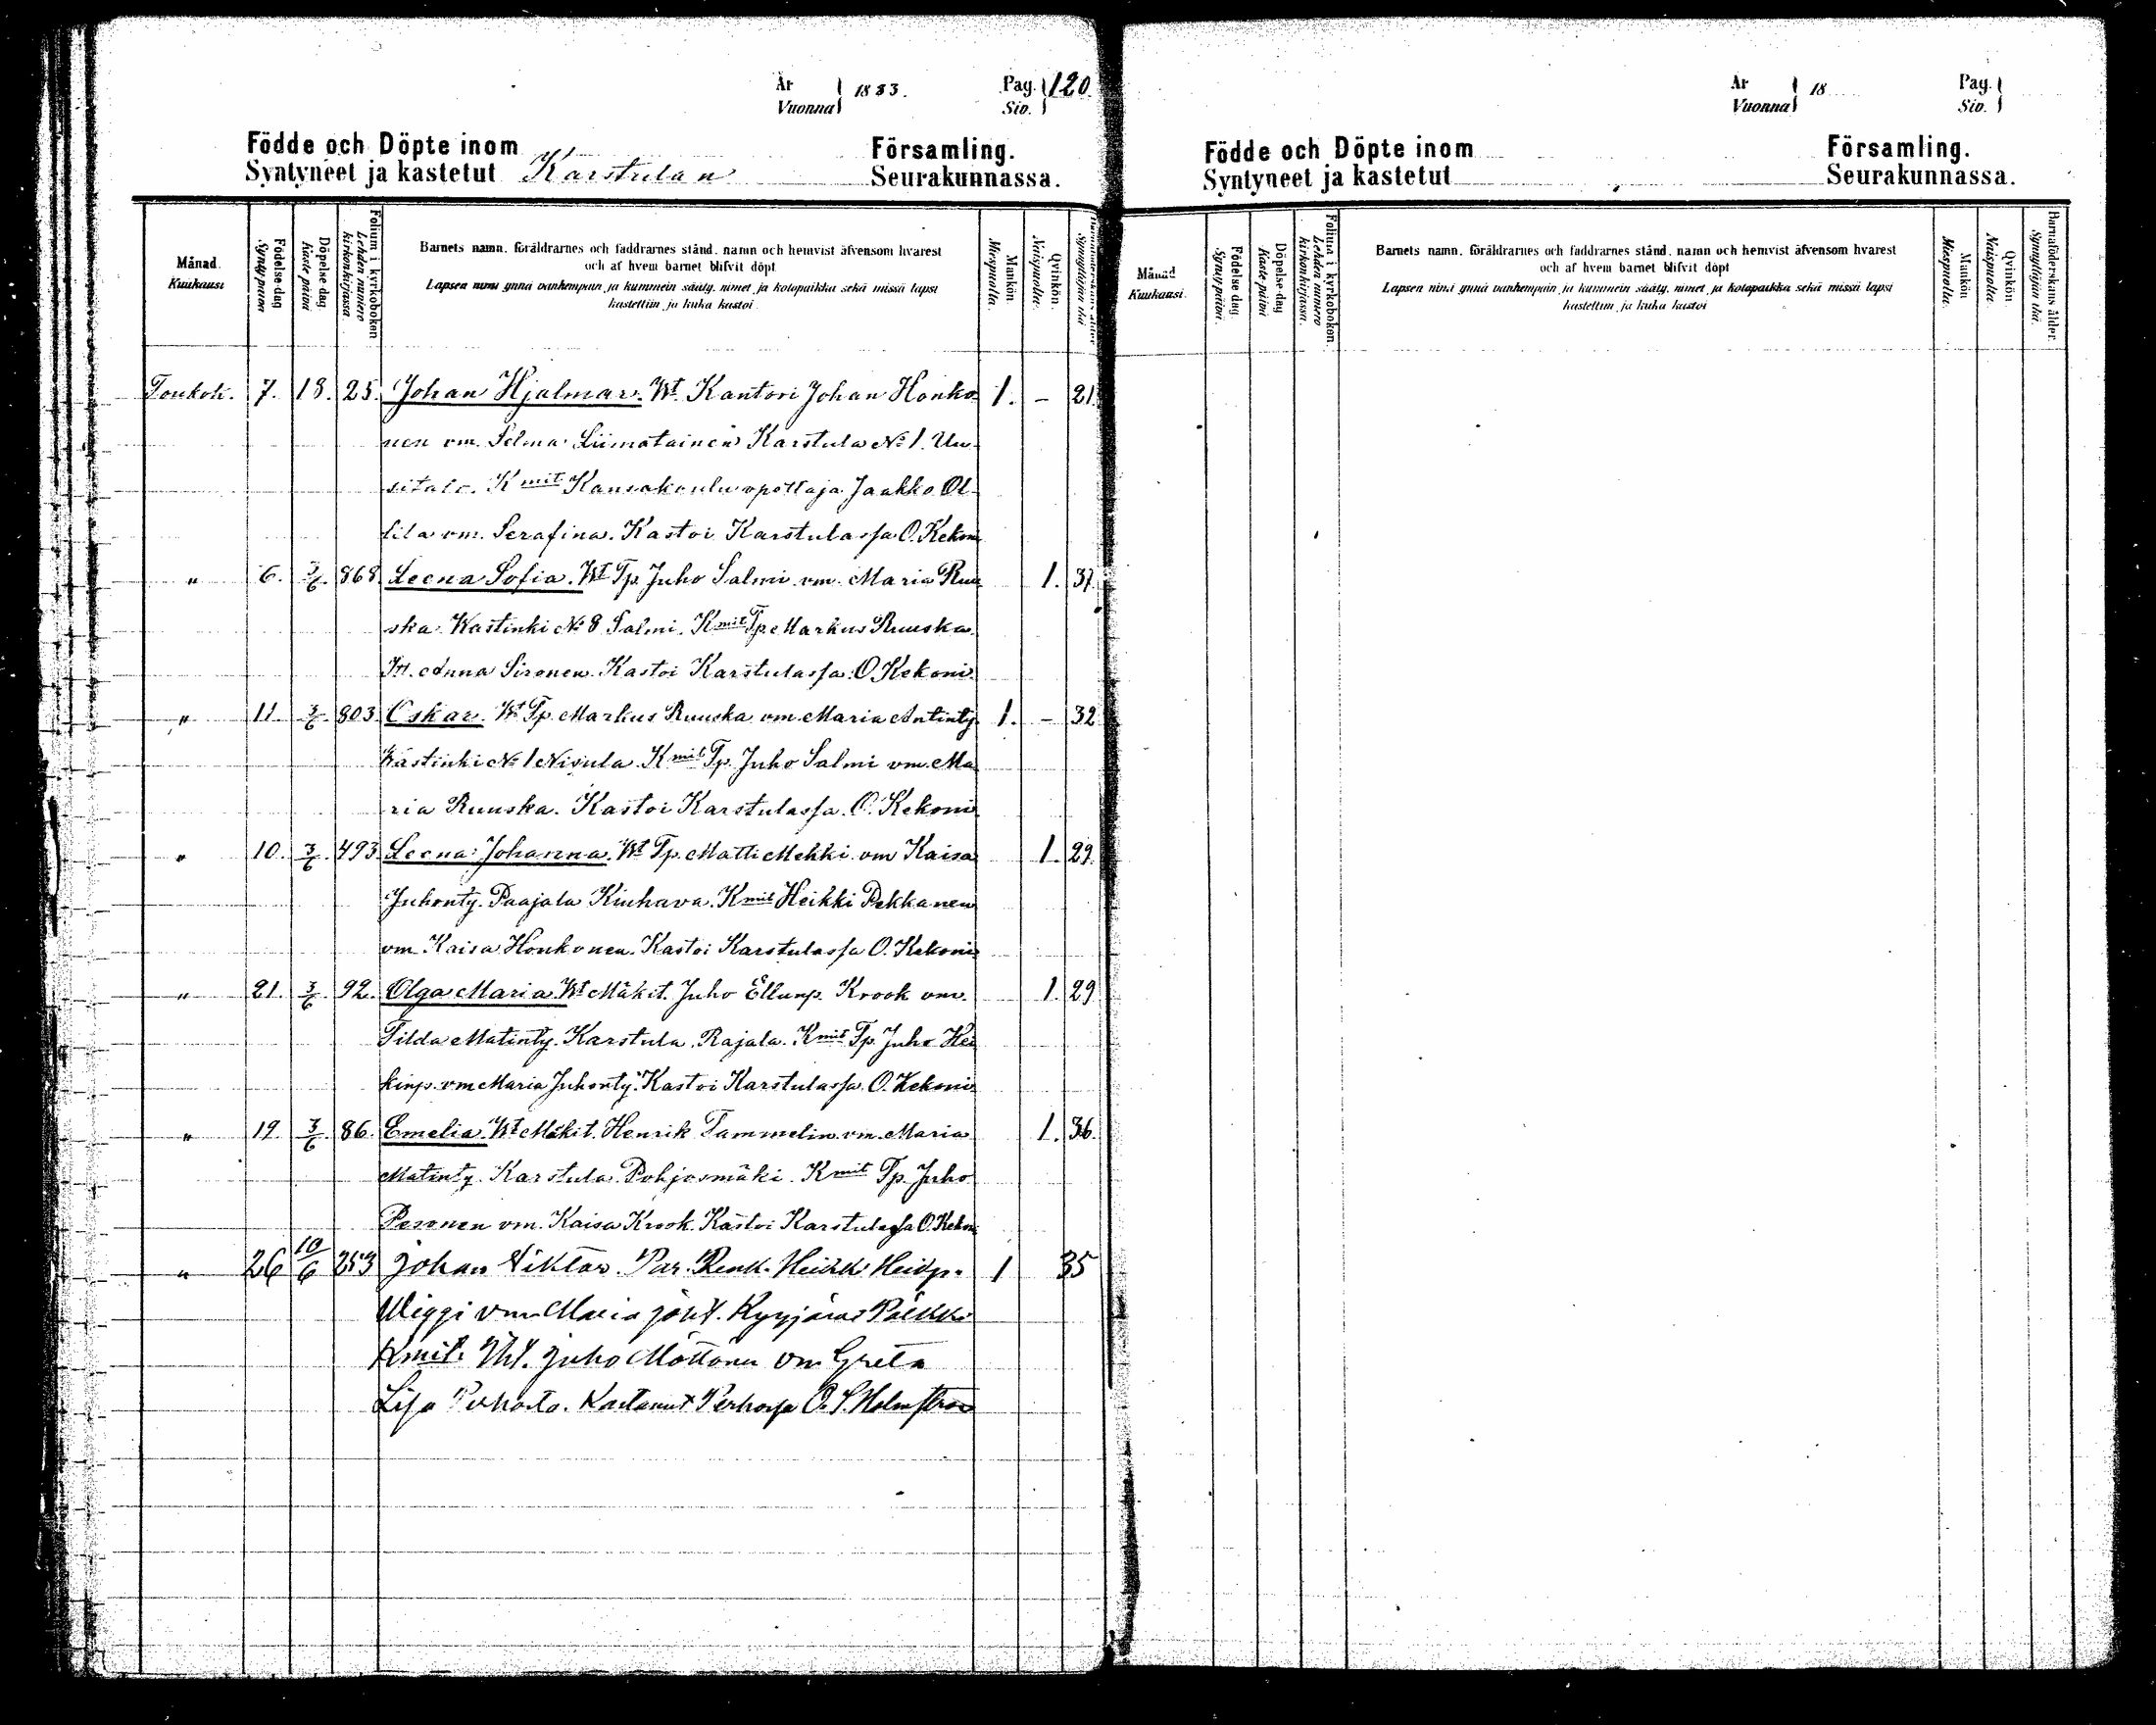 År
Vuonna } 1883.
Pag.
Siv. } 120.
Födde och Döpte inom Församling.
Syntyneet ja kastetut Karstulan Seurakunnassa.
Månad.
Kuukausi
Födelse-dag
Syntypäivä
Döpelse-dag
Kaste päivä
Folium i kyrkoboken
Lehden numero
kirkonkirjassa
Barnets namn, föräldrarnes och faddrarnes stånd, namn och hemvist äfvensom hvarest
och af hvem barnet blifvit döpt
Lapsen nimi ynnä vanhempain ja kummein sääty, nimet ja kotopaikka sekä missä lapsi
kastettiin ja kuka kastoi.
Mankön
Miespuolta.
Qvinkön
Naispuolta.
Synnyttäjän ikä
Toukok. 7. 18. 25. Johan Hjalmar. Wt. Kantori Johan Honko- 1. – 21.
nen vm. Selma Liimatainen Karstula No 1. Uu-
sitalo. Kmit Kansakoulu opettaja Jaakko Ol-
lila vm. Serafina. Kastoi Karstulassa O. Kekoni
" 6. 3/6. 868. Leena Sofia. Wt Tp. Juho Salmi vm. Maria Ruu- 1. 37.
ska Kastinki No 8 Salmi. Kmit Tp. Markus Ruuska
It. Anna Sironen. Kastoi Karstulassa O. Kekoni
" 11. 3/6. 803 Oskar. Wt Tp. Markus Ruuska vm. Maria Antinty. 1. – 32
Kastinki No 1 Nisula. Kmit Tp. Juho Salmi vm. Ma
ria Ruuska. Kastoi Karstulassa O. Kekoni
" 10. 3/6. 493. Leena Johanna. Wt Tp. Matti Mehki vm Kaisa 1. 29.
Juhonty. Paajala Kiuhava. Kmit Heikki Pekkanen
vm. Kaisa Honkonen. Kastoi Karstulassa O. Kekoni
" 21. 3/6. 92. Olga Maria Wt Mäkit. Juho Ellunp. Krook vm. 1. 29
Tilda Matinty. Karstula Rajala. Kmit Tp. Juho Hei
kinp. vm Maria Juhonty. Kastoi Karstulassa O. Kekoni
" 19. 3/6 86. Emelia. Wt Mäkit. Henrik Tammelin vm. Maria 1. 36.
Matinty. Karstula Pohjosmäki. Kmit Tp. Juho
Pesonen vm. Kaisa Krook. Kastoi Karstulassa O. Kekoni
" 26 10/6 253 Johan Viktor. Heikki Heikp. 1 35
vm Maria Kyyjärvi
Kmit. Juho Möttönen vm Greta
Lisa Kastanut Perhossa O. S. Holmström
År
Vuonna } 18
Pag.
Siv. }
Födde och Döpte inom Församling.
Syntyneet ja kastetut Seurakunnassa.
Månad
Kuukausi.
Födelse dag.
Synty päivä.
Döpelse-dag
Kaste päivä
Folium i kyrkoboken.
Lehden numero
kirkonkirjassa.
Barnets namn, föräldrarnes och faddrarnes stånd, namn och hemvist äfvensom hvarest
och af hvem barnet blifvit döpt
Lapsen nimi ynnä vanhempain ja kummein sääty, nimet ja kotopaikka sekä missä lapsi
kastettiin ja kuka kastoi
Mankön
Miespuolta.
Qvinkön
Naispuolta.
Barnaföderskans ålder.
Synnyttäjän ikä.